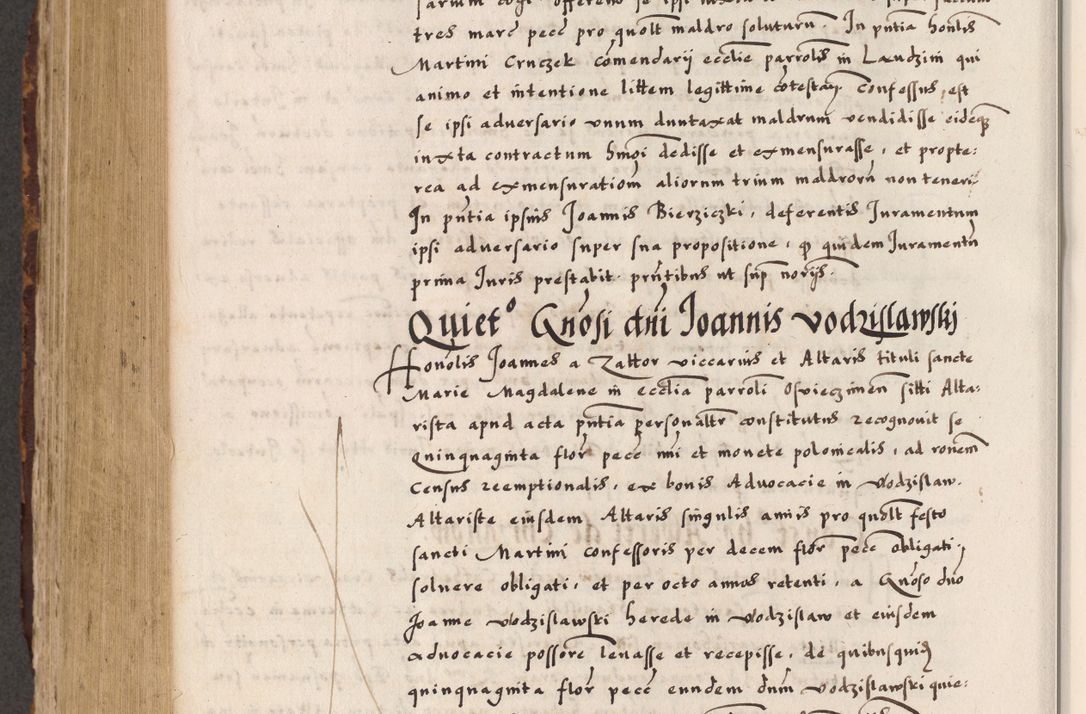 tres marc pecc pro quolt maldro soluturu. In pntia honlis
Martini Crnczek comendarij ecclie parrolis in Landzin qui
animo et intentione littem legittime cotestan confessus, est
se ipsi adversario unum duntaxat maldrum vendidisse eidemq
iuxta contractum hmoi dedisse et exmensurasse, et propte:
rea ad exmensurationem aliorum trium maldrorum non teneri
In pntia ipsius Joannis Bierziczki, deferentis Juramentum
ipsi adversario super sua propositione, qd quidem Juramentu
prima Juris prestabit. pntibus ut sup norijs.
Quiet° Gnosi dni Joannis vodzislawskj
Honolis Joannes a Zattor viccarius et Altaris tituli sancte
Marie Magdalene in ecclia parroli Osvieczimen sitti Alta:
rista apud acta pntia personaltr constitutus recognovit se
Quinquaginta flor pecc nni et monete polonicalis, ad ronem
Census reemptionalis, ex bonis Advocacie in vodzislaw.
Altariste eiusdem Altaris singulis annis pro quolt festo
sancti Martini confessoris per decem flor pecc obligati,
soluere obligati, et per octo annos retenti, a Gnoso dno
Joanne vodzislawski herede in vodzislaw et eiusdem
advocacie possore levasse et recepisse, de quibusquidem
quinquaginta flor pecc eundem dnm vodzislawski quie: